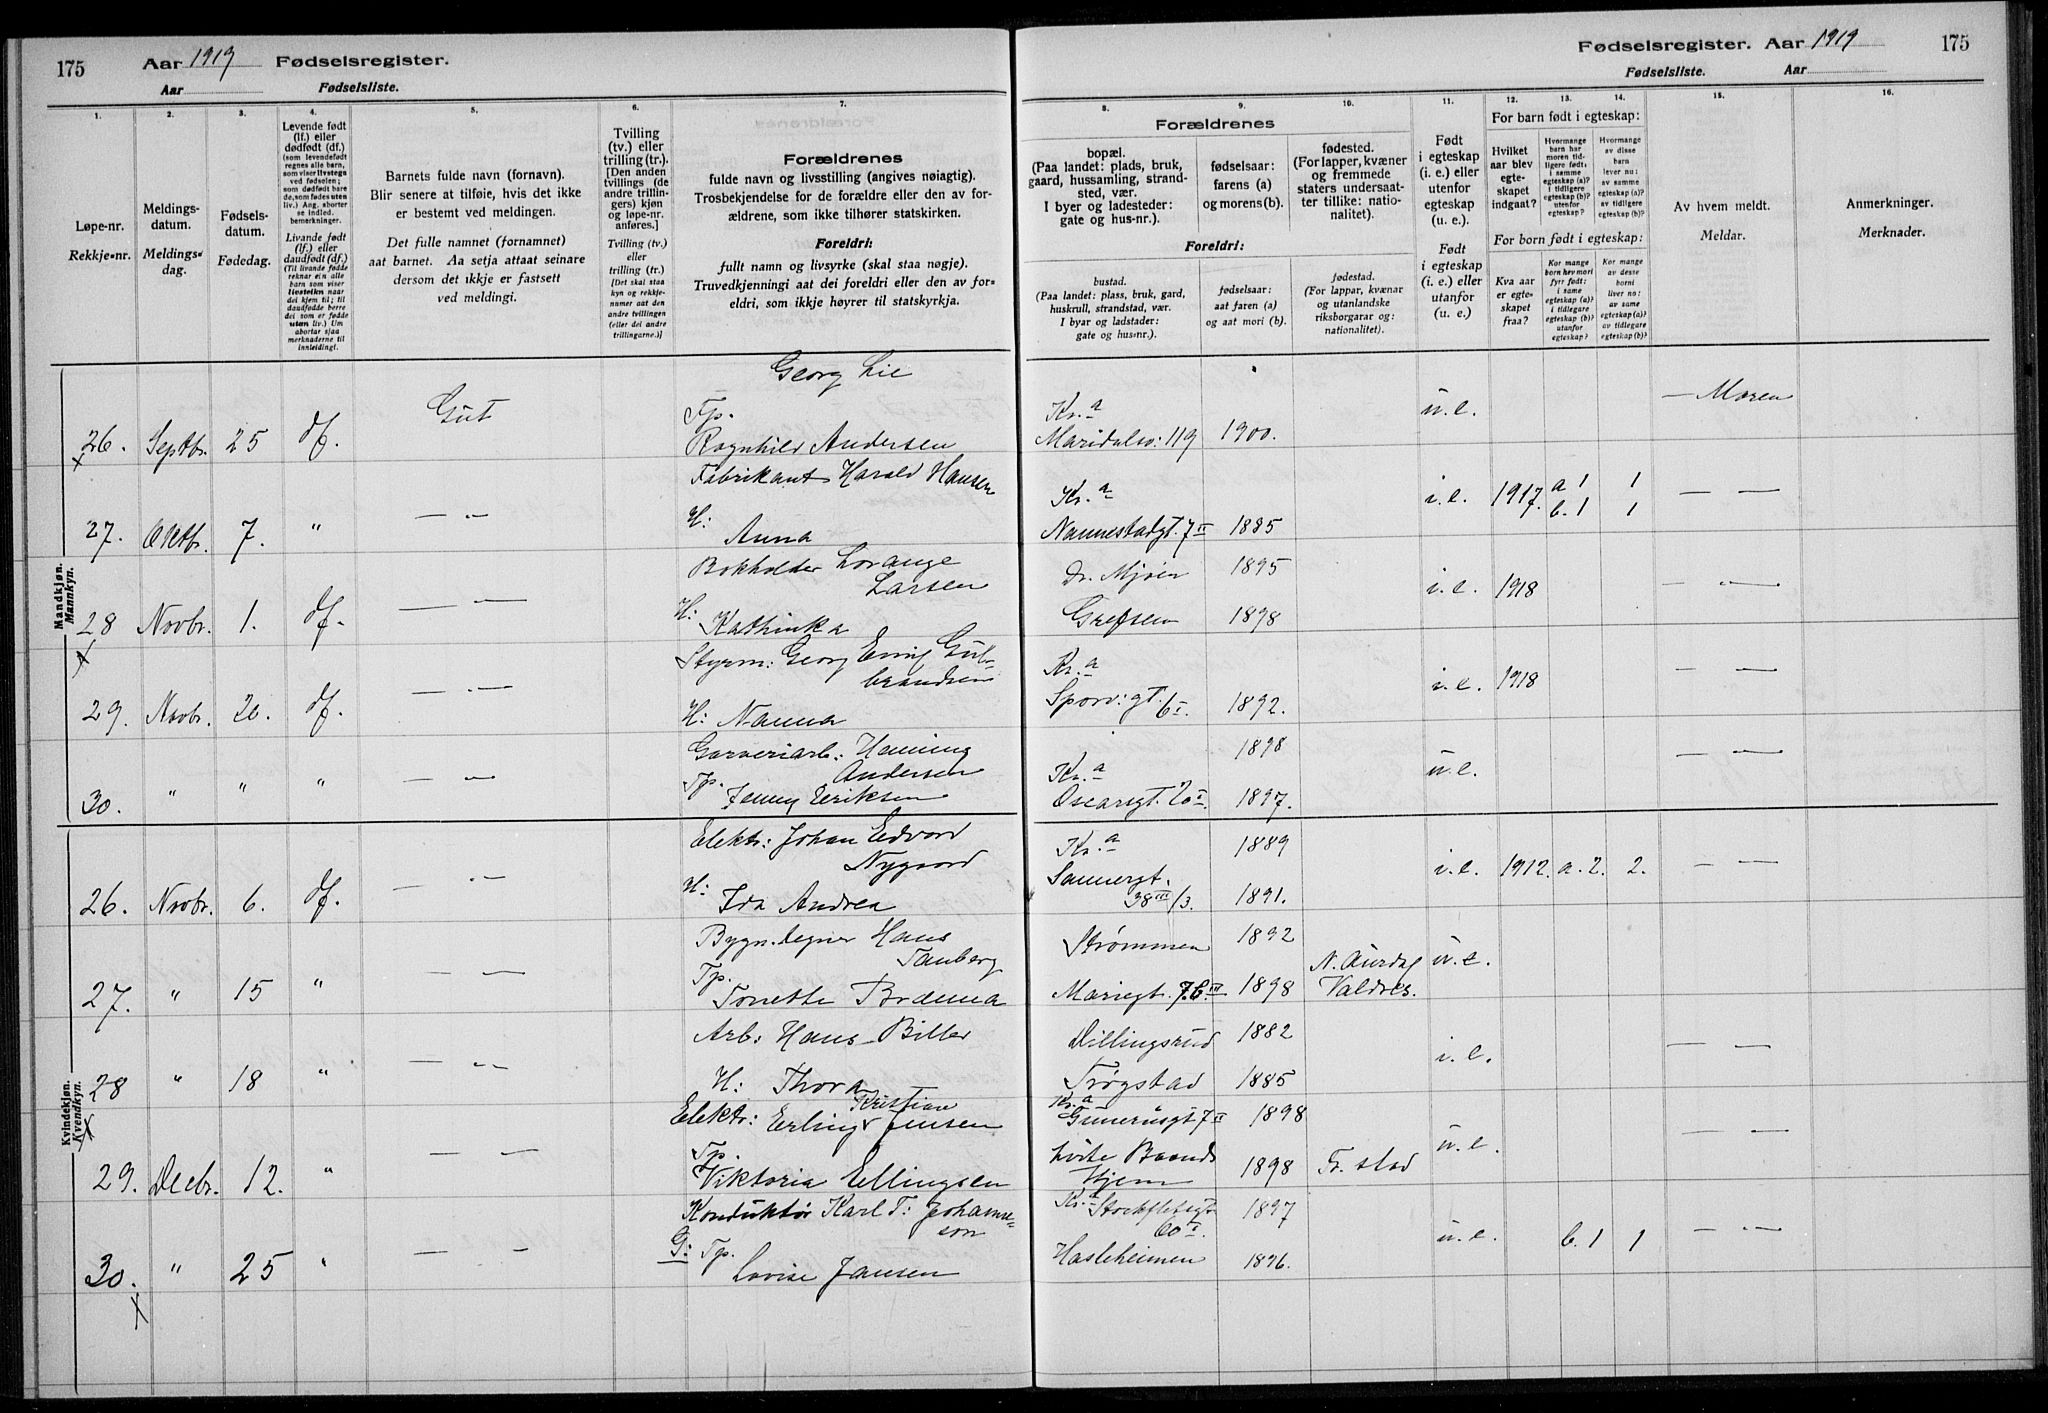 175 Aar 1919 Fødselsregister.
Aar Fødselsliste.
1. 2. 3. 4. 5. 6. 7.
Løpe-nr.
Rekkje-nr.
Meldings-
datum.
Meldings-
dag.
Fødsels-
datum.
Fødedag.
Levende født
(lf.) eller
dødfødt (df.)
(som levendefødt
regnes alle barn,
som viser livstegn
ved fødselen;
som dødfødt bare
de, som fødes uten
liv.) Ang. aborter
se indled.
bemerkninger.
Livande født
(lf.) eller
daudfødt (df.)
(Til livande fødde
reknar ein alle
barn som viser
livsteikn naar
dei kjem til; til
daudfødde berre
dei som er fødde
uten liv.) Um
abortar sjaa
merknaderne til
innleidingi.
Barnets fulde navn (fornavn).
Blir senere at tilføie, hvis det ikke
er bestemt ved meldingen.
Det fulle namnet (fornamnet)
aat barnet. Aa setja attaat seinare
dersom det ikkje er fastsett
ved meldingi.
Tvilling
(tv.) eller
trilling (tr.).
[Den anden
tvillings (de
andre trillin-
gers) kjøn
og løpe-nr.
anføres.]
Tvilling (tv.)
eller
trilling (tr.)
[Det skal staa
kyn og rekkje-
numer aat den
andre tvillingen
(eller dei andre
trillingarne.)]
Forældrenes
fulde navn og livsstilling (angives nøiagtig).
Trosbekjendelse for de forældre eller den av for-
ældrene, som ikke tilhører statskirken.
Foreldri:
fullt namn og livsyrke (skal staa nøgje).
Truvedkjenningi aat dei foreldri eller den av for-
eldri, som ikkje høyrer til statskyrkja.
Mandkjøn.
Mannkyn.
Georg Lie
26. Septbr. 25 df. Gut Tp.
Ragnhild Andersen
Fabrikant Harald Hansen
27. Oktbr. 7. " — " — H: Anna
Bokholder Lorange
Larsen
28 Novbr. 1. df. — " — H: Kathinka
Styrm: Georg Emil Gul-
brandsen
29. Novbr. 20. df. — " — H: Nanna
Garveriarb: Henning
Andersen
30. " " " — " — Tp. Jenny Eriksen
Kvindekjøn.
Kvendkyn.
Elektr: Johan Edvard
Nygaard
26. Novbr. 6. df. — " — H: Ida Andrea
Bygn.tegner Hans
Tanberg
27. " 15 " — " — Tp. Tonette Brænna
Arb: Hans Biller
28 " 18 " — " — H: Thora
Kristian
Elektr: Erling Jensen
29. Decbr. 12. " — " — Tp.
Viktoria Ellingsen
Konduktør Karl T: Johanne-
sen
30. " 25 " — — G: Tp.
Lovise Jansen
Fødselsregister. Aar 1919 175
Fødselsliste. Aar
8. 9. 10. 11. 12. 13. 14. 15. 16.
Forældrenes
bopæl.
(Paa landet: plads, bruk,
gaard, hussamling, strand-
sted, vær.
I byer og ladesteder:
gate og hus-nr.).
fødselsaar:
farens (a)
og morens (b).
fødested.
(For lapper, kvæner
og fremmede
staters undersaat-
ter tillike: natio-
nalitet).
Foreldri:
bustad.
(Paa landet: plass, bruk, gard,
huskrull, strandstad, vær.
I byar og ladstader:
gate og hus-nr.).
fødselsaar:
aat faren (a)
og aat mori (b).
fødestad.
(For lappar, kvænar
og utanlandske
riksborgarar og:
nationalitet).
Født
i egteskap
(i. e.) eller
utenfor
egteskap
(u. e.).
Født
i egteskap
(i. e.) eller
utanfor
egteskap
(u. e.).
For barn født i egteskap:
Hvilket
aar blev
egte-
skapet
indgaat?
Hvormange
barn har
moren tid-
ligere født:
i samme
egteskap (a)?
i tidligere
egteskap (b)?
utenfor
egteskap?
Hvormange
av disse
barn
lever nu:
av samme
egteskap (a)?
av tidligere
egteskap (b)?
For born født i egteskap:
Kva aar
er egte-
skapet
fraa?
Kor mange
born hev mori
fyrr født:
i same
egteskap (a)?
i tidlegare
egteskap (b)?
utanfor
egteskap?
Kor mange
av desse
borni
liver no:
av same
egteskap (a)?
av tidlegare
egteskap (b)?
Av hvem meldt.
Meldar.
Anmerkninger.
Merknader.
Kr.a u.e. — Moren
Maridalsv: 119 1900.
Kr.a i.e. 1917. a 1 1 — " —
b. 1 1
Nannestadgt. 7 II 1885
Dr. Mjøen 1895 i.e. 1918 — " —
Grefsen 1898
Kr.a i.e. 1918 — " —
Sporv:gt. 6 I. 1892.
1898
Kr.a u.e. — " —
Oscarsgt. 20 I. 1897.
Kr.a 1889
Sannergt. i.e. 1912. a. 2. 2. — " —
38 III/3. 1891.
Strømmen 1892
N. Aurdal u.e.
Mariegt. 7.b. III 1898 Valdres.
Dillingsrud 1882 i.e. — " —
Trøgstad 1885
Kr.a
Gunerusgt 7 II 1898 u.e. — " —
Hvite Baands
Hjem 1898 Fr.stad
Kr.a Stockfletsgt
60 I. 1897
u.e. b. 1 1 — " —
Hasleheimen 1896.